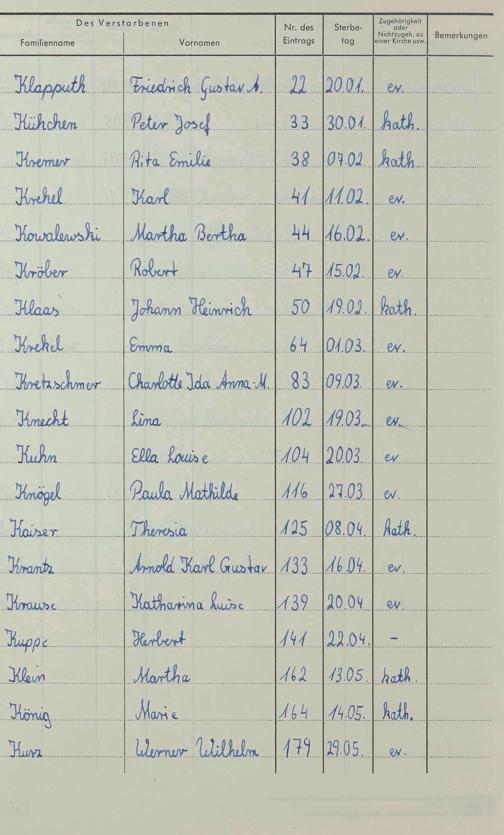 Des Verstorbenen
Familienname Vornamen Nr. des Eintrags Sterbe-tag Zugehörigkeit oder Nichtzugeh. zu einer Kirche usw. Bemerkungen
Klapputh Friedrich Gustav A. 22 20.01. ev.
Kühchen Peter Josef 33 30.01. kath.
Kremer Rita Emilie 38 07.02. kath.
Krekel Karl 41 11.02. ev.
Kowalewski Martha Bertha 44 16.02. ev.
Kröber Robert 47 15.02. ev.
Klaas Johann Heinrich 50 19.02. kath.
Krekel Emma 64 01.03. ev.
Kretzschmer Charlotte Ida Anna-M. 83 09.03. ev.
Knecht Lina 102 19.03. ev.
Kuhn Ella Louise 104 20.03. ev
Knögel Paula Mathilde 116 27.03. ev.
Kaiser Theresia 125 08.04. kath.
Krantz Arnold Karl Gustav 133 16.04. ev.
Krause Katharina Luise 139 20.04 ev.
Kuppe Herbert 141 22.04. –
Klein Martha 162 13.05. kath.
König Marie 164 14.05. kath.
Kurz Werner Wilhelm 179 29.05. ev.